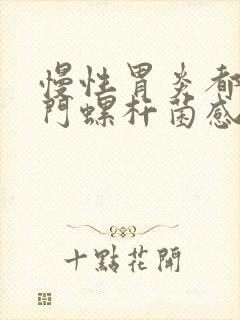 慢性胃炎都
门螺杆菌感
十點花開